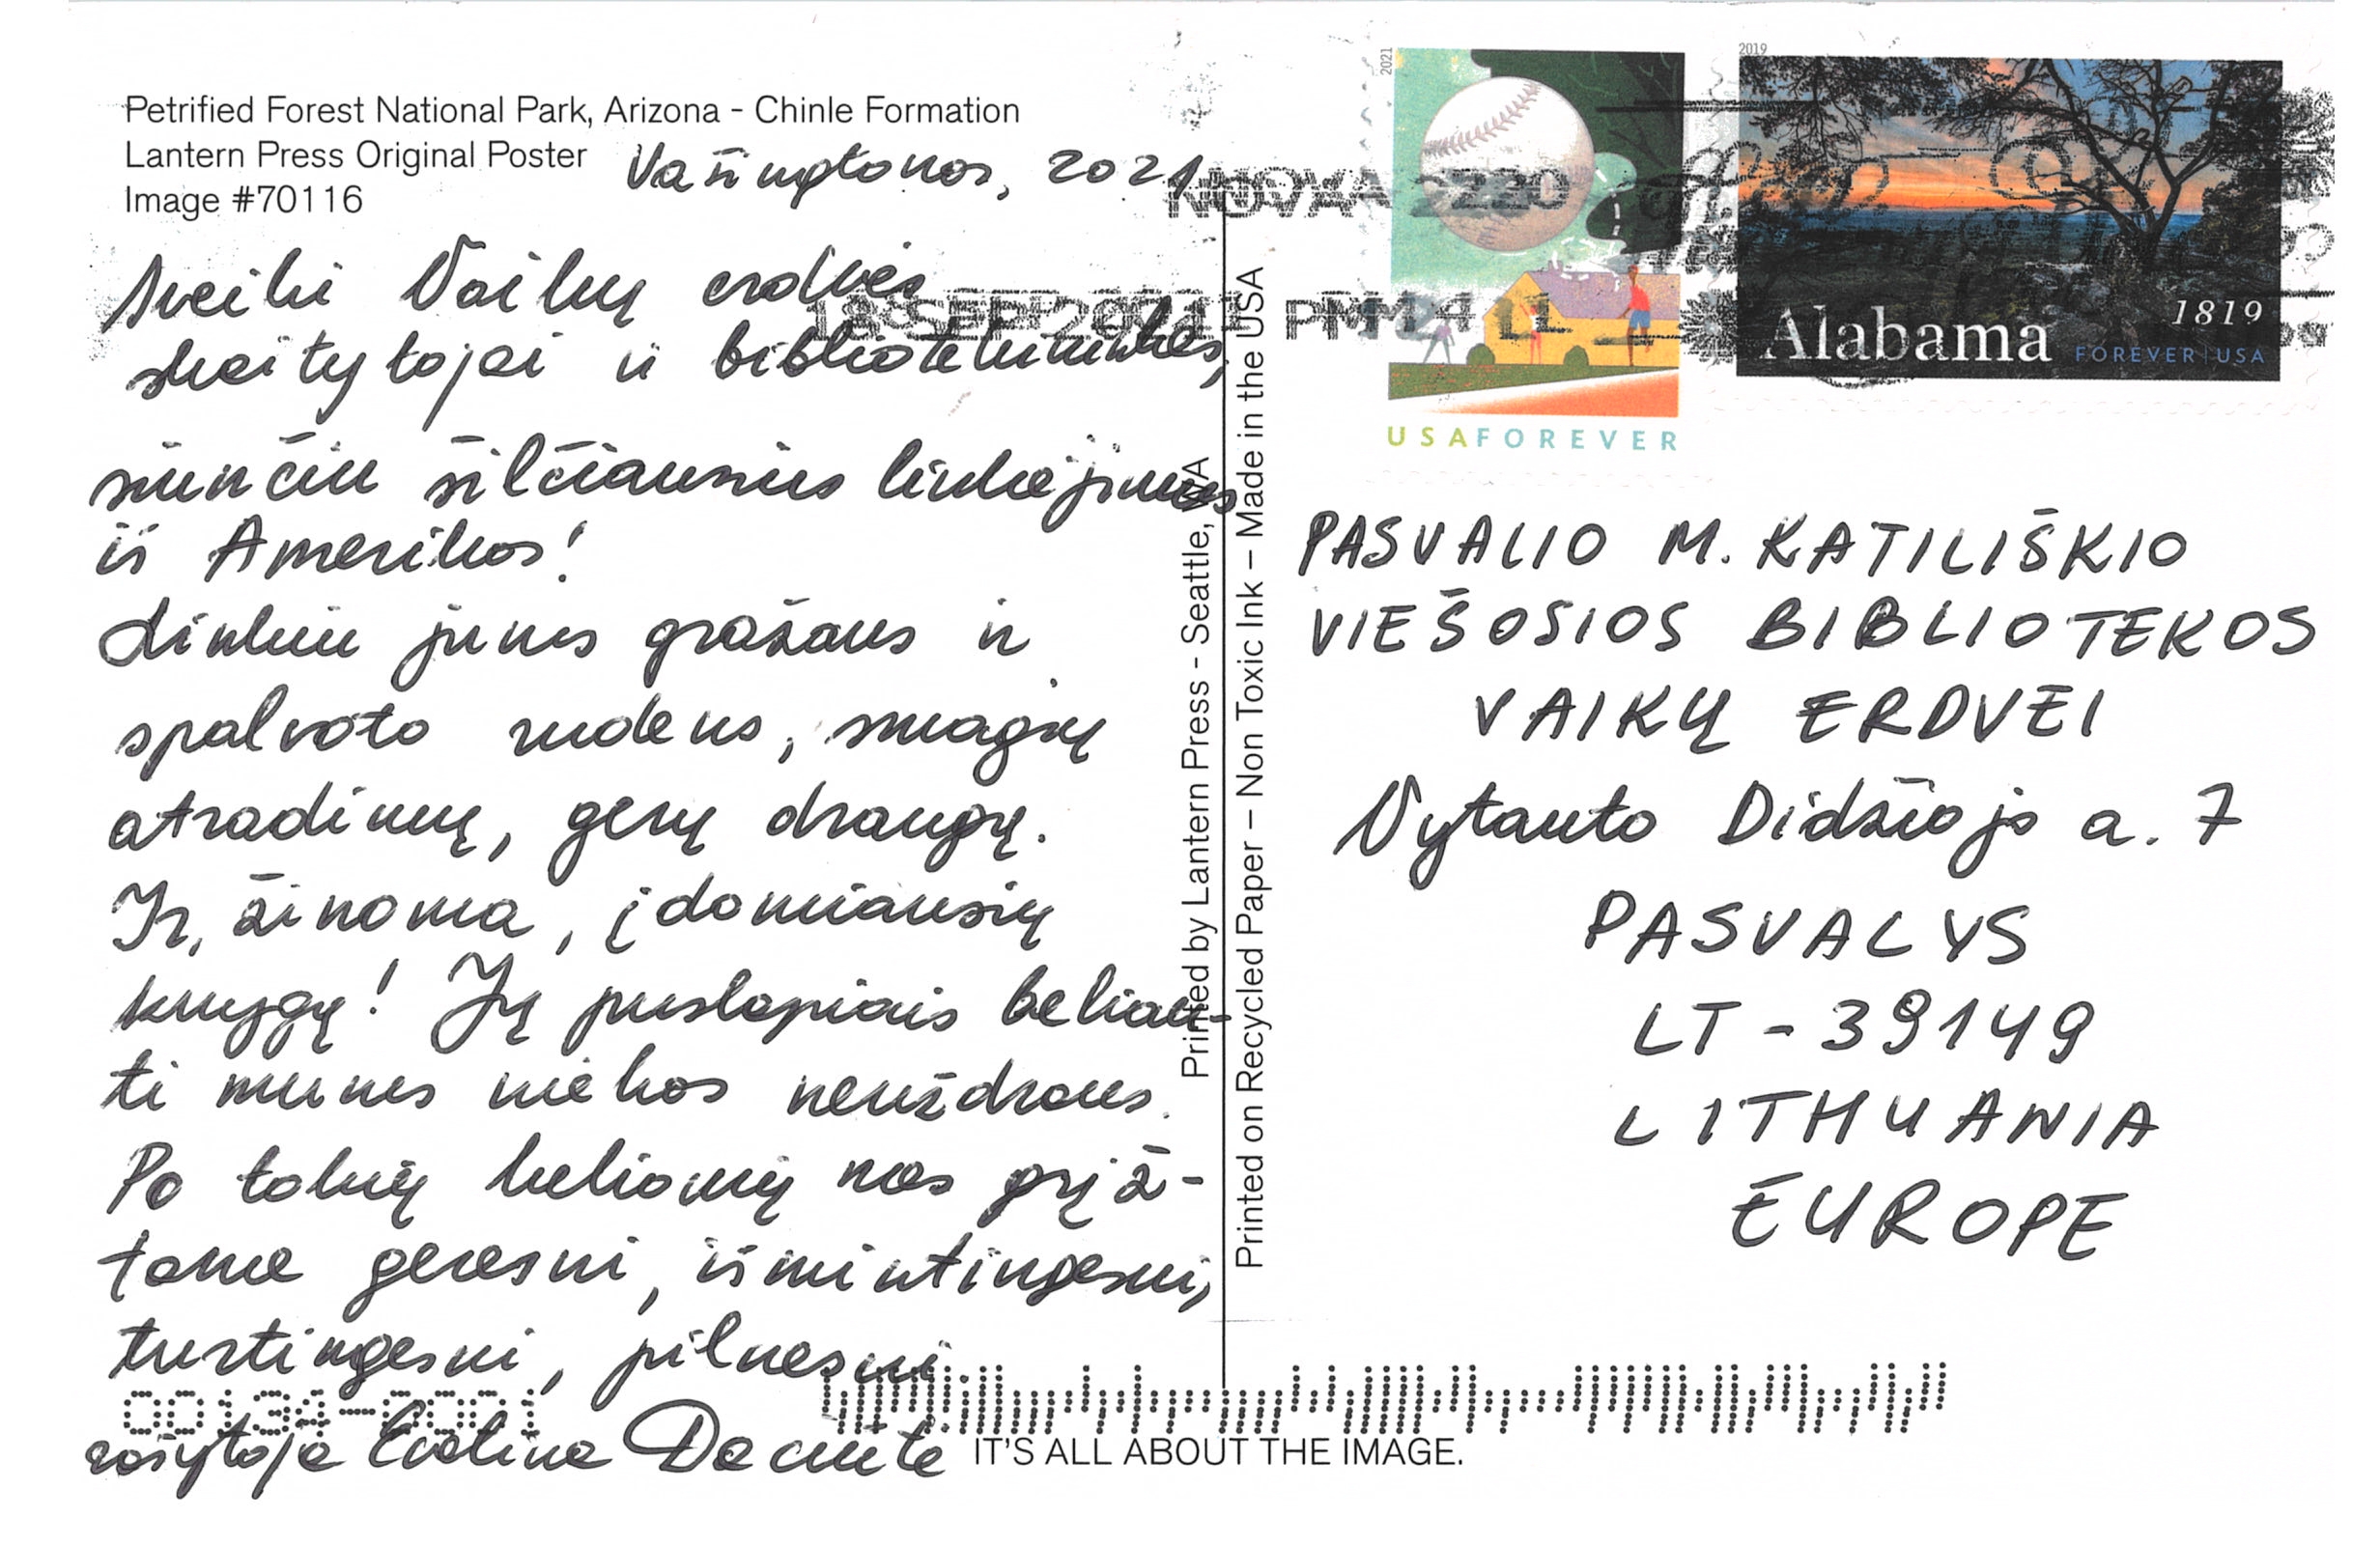 Petrified Forest National Park, Arizona - Chinle Formation
Lantern Press Original Poster
Image #70116
Vašingtonas, 2021
Sveiki Vaikų erdvės
skaitytojai ir bibliotekininkės,
siunčiu šilčiausius linkėjimus
iš Amerikos!
Linkiu jums gražaus ir
spalvoto rudens, smagių
atradimų, gerų draugų.
Ir, žinoma, įdomiausių
knygų! Jų puslapiais keliau-
ti mums niekas neuždraus.
Po tokių kelionių mes grįž-
tame geresni, išmintingesni,
turtingesni, pilnesni
rašytoja Evelina Daciūtė
Printed by Lantern Press - Seattle, WA
Printed on Recycled Paper – Non Toxic Ink – Made in the USA
2021
USA FOREVER
2019
Alabama
1819
FOREVER | USA
NOVA 220
18 SEP 2021 PM 4 L
PASVALIO M. KATILIŠKIO
VIEŠOSIOS BIBLIOTEKOS
VAIKŲ ERDVEI
Vytauto Didžiojo a. 7
PASVALYS
LT - 39149
LITHUANIA
EUROPE
IT'S ALL ABOUT THE IMAGE.